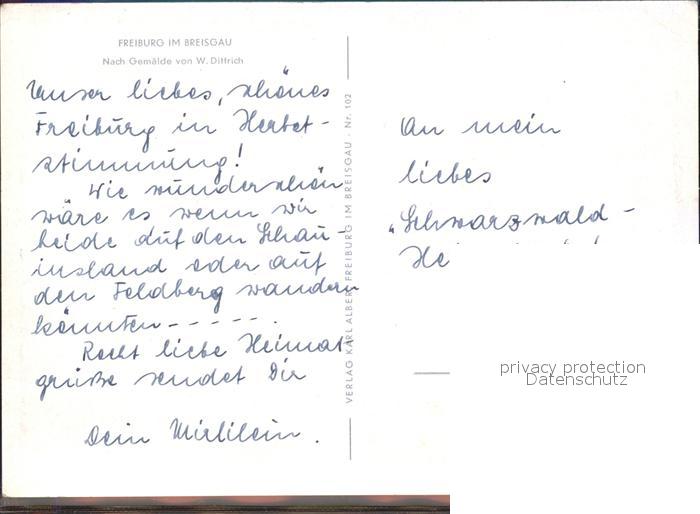 FREIBURG IM BREISGAU
Nach Gemälde von W. Dittrich
Unser liebes, schönes
Freiburg in Herbst-
stimmung!
Wie wunderschön
wäre es wenn wir
beide auf den Schau-
insland oder auf
den Feldberg wandern
könnten - - - - - .
Recht liebe Heimat-
grüße sendet Dir
Dein Mirlilein.
VERLAG KARL ALBER, FREIBURG IM BREISGAU - Nr. 102
An mein
liebes
„Schwarzwald-
He
privacy protection
Datenschutz